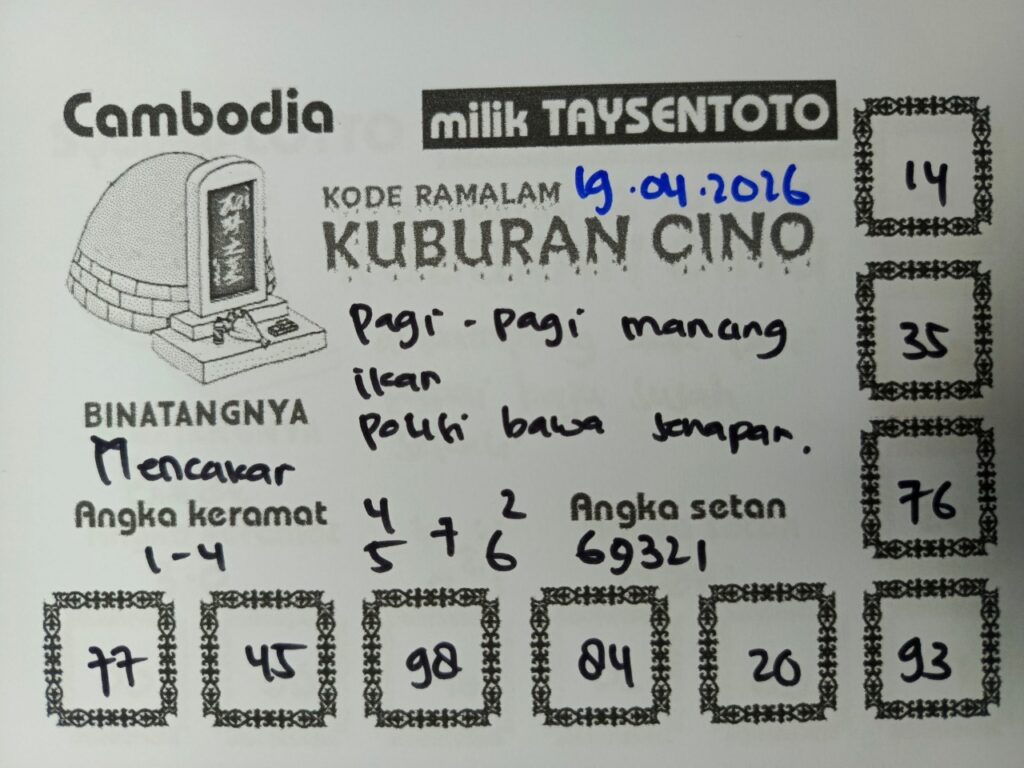 Cambodia
milik TAYSENTOTO
KODE RAMALAM 19.04.2026
KUBURAN CINO
Pagi - pagi mancing
ikan
Polisi bawa senapan.
BINATANGNYA
Mencakar
Angka keramat
1-4
4 2
5 7 6
Angka setan
69321
14
35
76
77 45 98 84 20 93